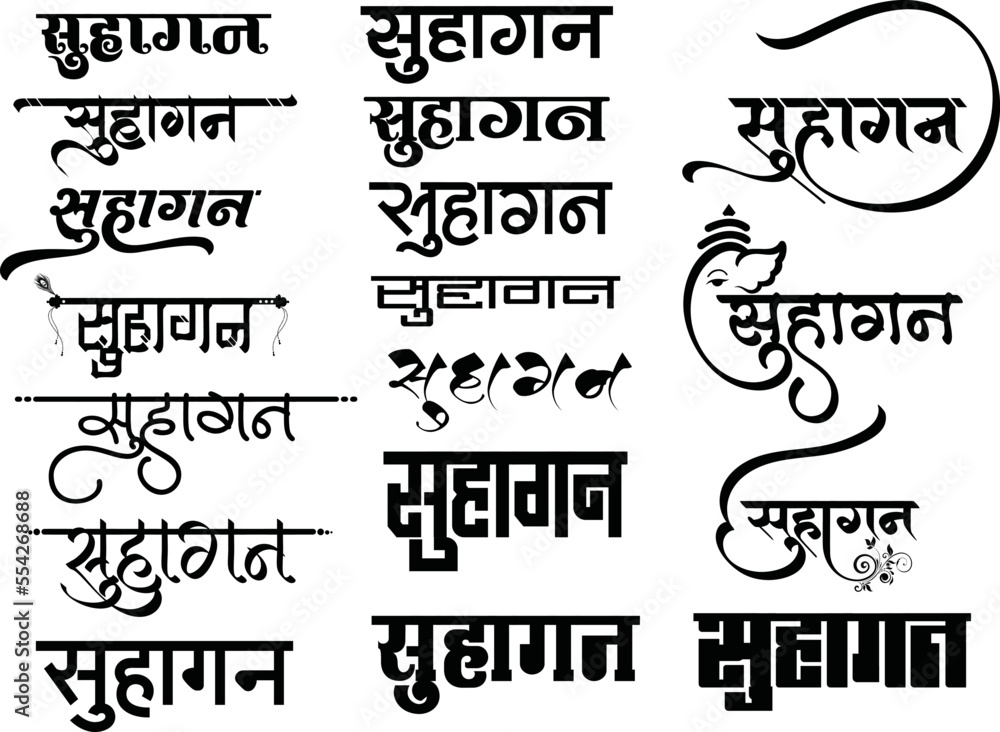 सुहागन
सुहागन
सुहागन
सुहागन
सुहागन
सुहागन
सुहागन
सुहागन
सुहागन
सुहागन
सुहागन
सुहागन
सुहागन
सुहागन
सुहागन
सुहागन
सुहागन
सुहागन
Adobe Stock | #554268688